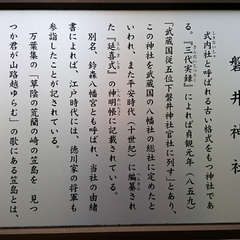 磐井神社
式内社と呼ばれる古い格式をもつ神社であ
る。『三代実録』によれば貞観元年（八五九）
「武蔵国従五位下磐井神社官社に列す」とあり、
この神社を武蔵国の八幡社の総社に定めたと
いわれ、また平安時代（十世紀）に編纂され
た『延喜式』の神明帳に記載されている。
別名、鈴森八幡宮とも呼ばれ、当社の由緒
書によれば、江戸時代には、徳川家の将軍も
参詣したことが記されている。
万葉集の「草陰の荒藺の崎の笠島を 見つ
つか君が山路越ゆらむ」の歌にある笠島とは、